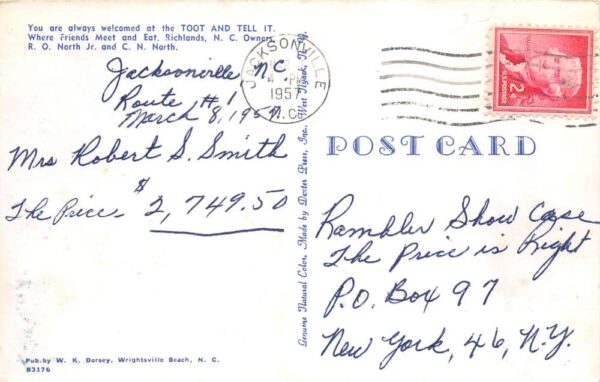 You are always welcomed at the TOOT AND TELL IT.
Where Friends Meet and Eat. Richlands, N. C. Owners
R. O. North Jr. and C. N. North.
Jacksonville N.C.
Route #1
March 8, 1957
Mrs Robert S. Smith
The Price - $2,749.50
Pub. by W. K. Dorsey, Wrightsville Beach, N. C.
83176
Genuine Natural Color, Made by Dexter Press, Inc., West Nyack, N. Y.
JACKSONVILLE
1957
N.C.
2¢
U.S. POSTAGE
POST CARD
Rambler Show Case
The Price is Right
P.O. Box 97
New York, 46, N.Y.